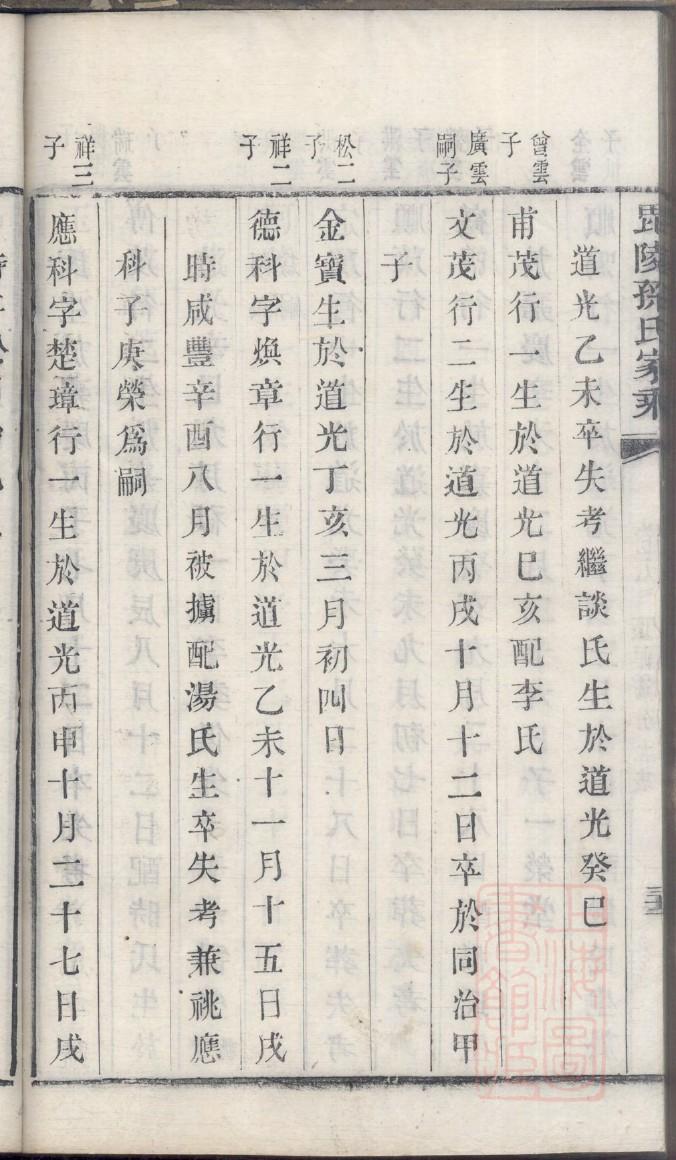 毘陵孫氏家乘
道光乙未卒失考繼談氏生於道光癸巳
曾雲子
甫茂行一生於道光巳亥配李氏
廣雲嗣子
文茂行二生於道光丙戌十月十二日卒於同治甲
子
松二子
金寶生於道光丁亥三月初四日
祥二子
德科字煥章行一生於道光乙未十一月十五日戌
時咸豐辛酉八月被擄配湯氏生卒失考兼祧應
科子庚榮爲嗣
祥三子
應科字楚璋行一生於道光丙申十月二十七日戌